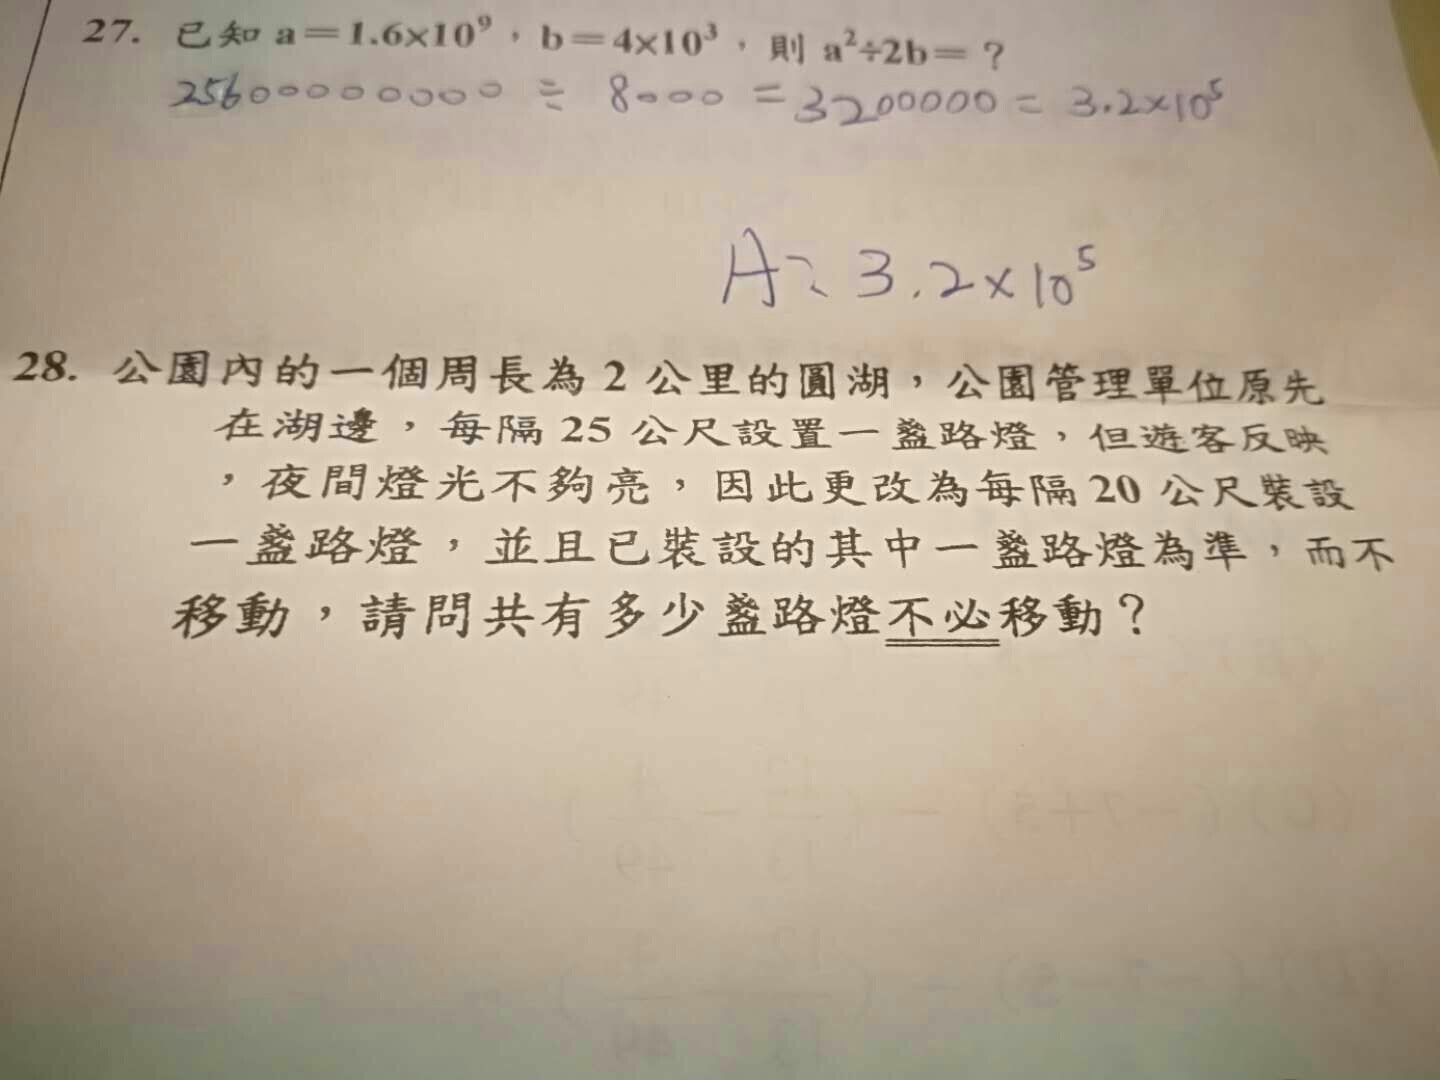 27. 已知 a＝1.6×10⁹，b＝4×10³，則 a²÷2b＝？
25600000000000 ÷ 8000 = 3200000 = 3.2×10⁵
A: 3.2×10⁵
28. 公園內的一個周長為 2 公里的圓湖，公園管理單位原先
在湖邊，每隔 25 公尺設置一盞路燈，但遊客反映
，夜間燈光不夠亮，因此更改為每隔 20 公尺裝設
一盞路燈，並且已裝設的其中一盞路燈為準，而不
移動，請問共有多少盞路燈不必移動？